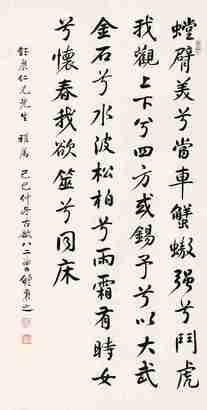 螳臂美兮當車蟹螯强兮鬥虎
我觀上下兮四方或錫予兮以大武
金石兮水波松柏兮雨霜有時女
兮懷春我欲筮兮同床
泉仁兄先生 雅属 己巳仲冬古歙八二叟